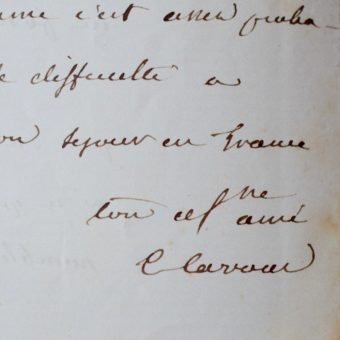 c'est assez proba-
difficulté a
sejour en France
ton aff^ne ami